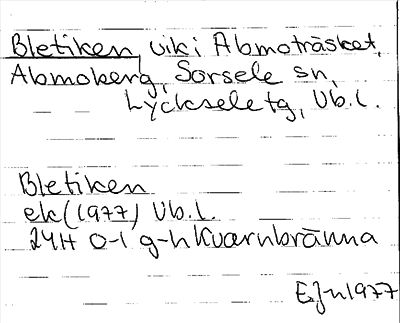 Bletiken vik i Abmoträsket,
Abmoberg, Sorsele sn,
Lycksele tg, Vb.l.
Bletiken
ek (1977) Vb.l.
24H 0-1 g-h Kvarnbränna
EJn 1977